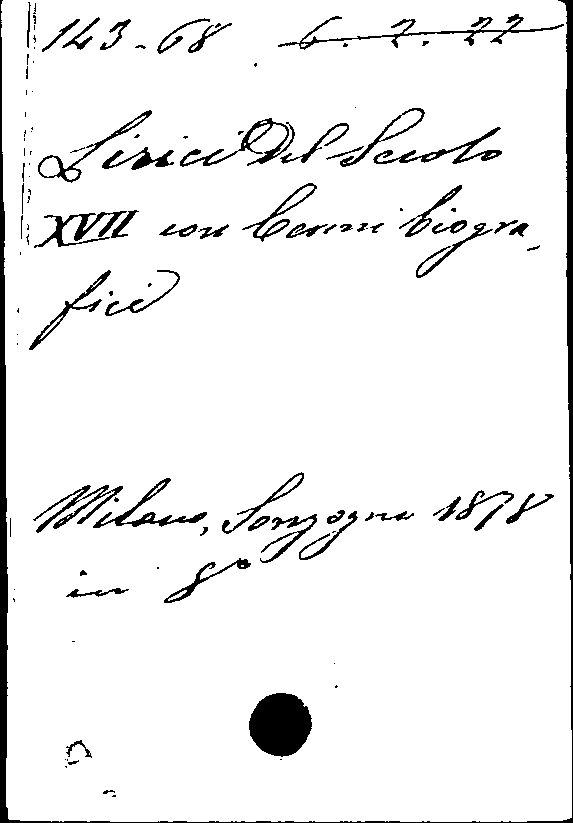 143-68 6. 2. 22
Lirici Del Secolo
XVII con Cenni biogra-
fici
Milano, Sonzogno 1878
in 8°